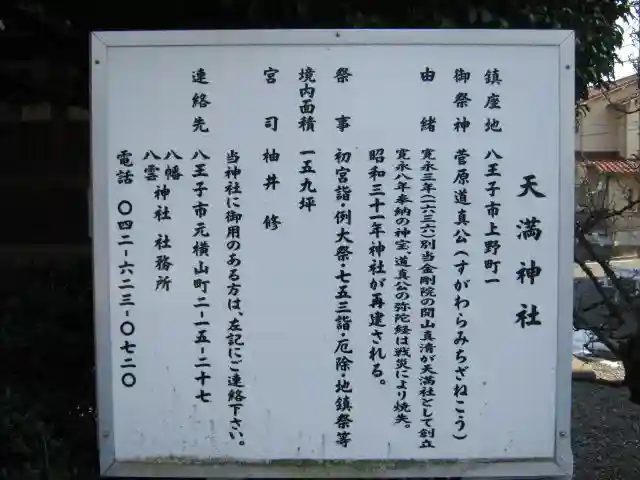 天満神社
鎮座地 八王子市上野町一
御祭神 菅原道真公(すがわらみちざねこう)
由緒 寛永三年(一六二六)別当金剛院の開山真清が天満社として創立
寛永八年奉納の神宝、道真公の弥陀経は戦災により焼失。
昭和三十一年神社が再建される。
祭事 初宮詣・例大祭・七五三詣・厄除・地鎮祭等
境内面積 一五九坪
宮司 柚井 修
当神社に御用のある方は、左記にご連絡下さい。
連絡先 八王子市元横山町二-一五-二十七
八幡八雲神社 社務所
電話 〇四二-六二三-〇七二〇